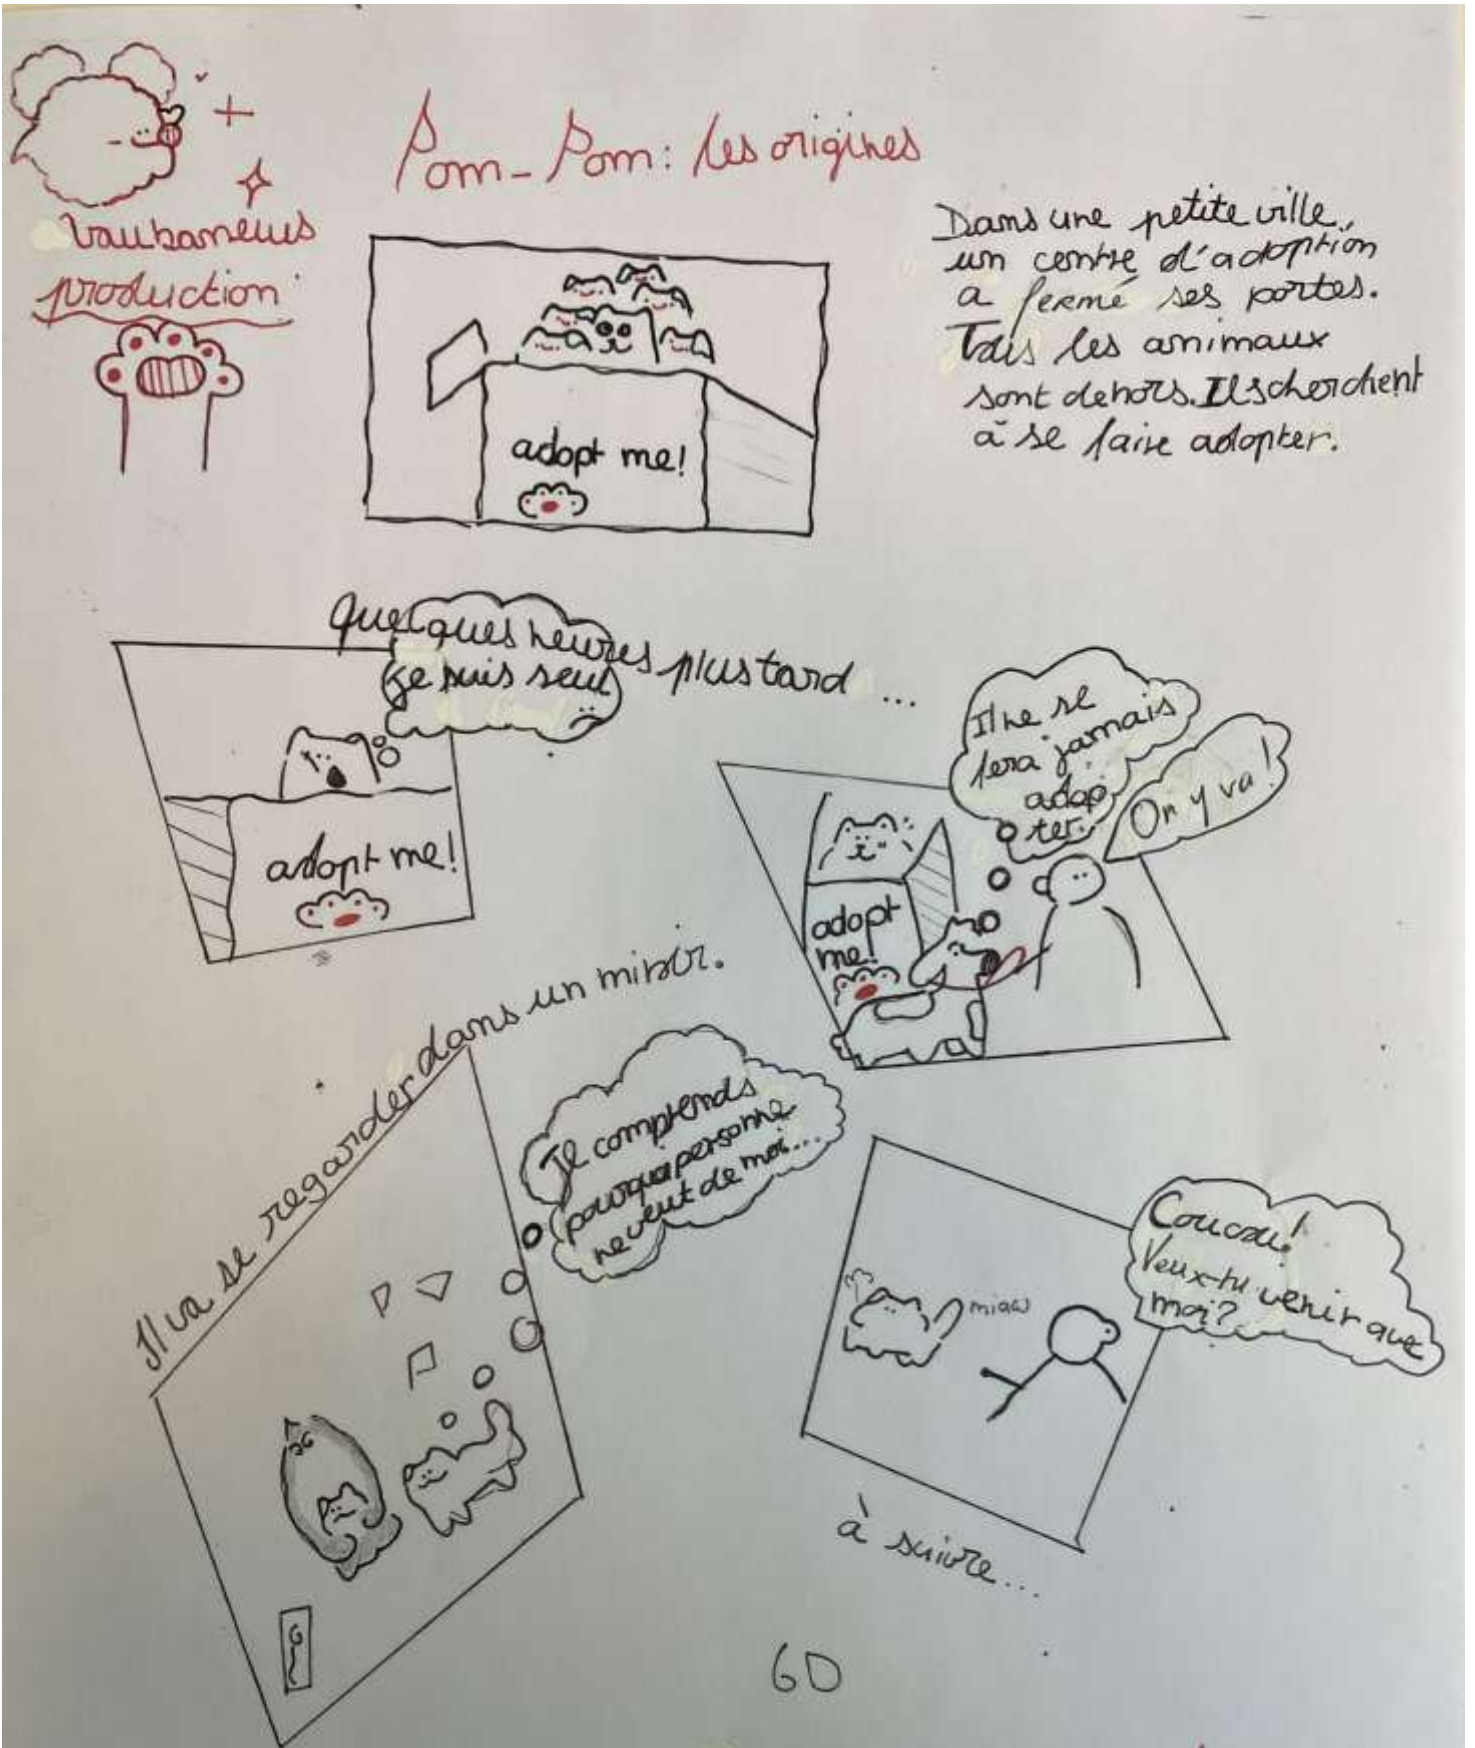 Pom-Pom: les origines
Vaubanews
production
Dans une petite ville,
un centre d'adoption
a fermé ses portes.
Tous les animaux
sont dehors. Ils cherchent
à se faire adopter.
adopt me!
Quelques heures plus tard ...
Je suis seul
adopt me!
Il ne se
fera jamais
adop
ter.
On y va!
adopt
me!
Il va se regarder dans un miroir.
Je comprends
pourquoi personne
ne veut de moi...
Coucou!
Veux-tu venir avec
moi?
miaw
à suivre...